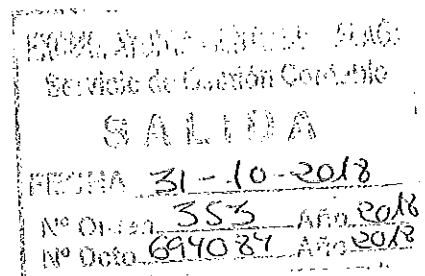 EXCMO. AYUNTAMIENTO DE MÁLAGA
Servicio de Gestión Contable
SALIDA
FECHA 31-10-2018
Nº Orden 353 Año 2018
Nº Dcto 694084 Año 2018